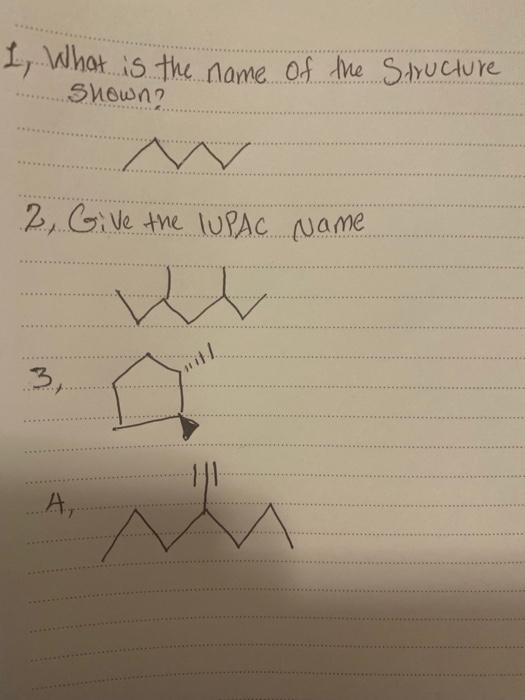 1, What is the name of the Structure
Shown?
2, Give the IUPAC Name
3,
4,